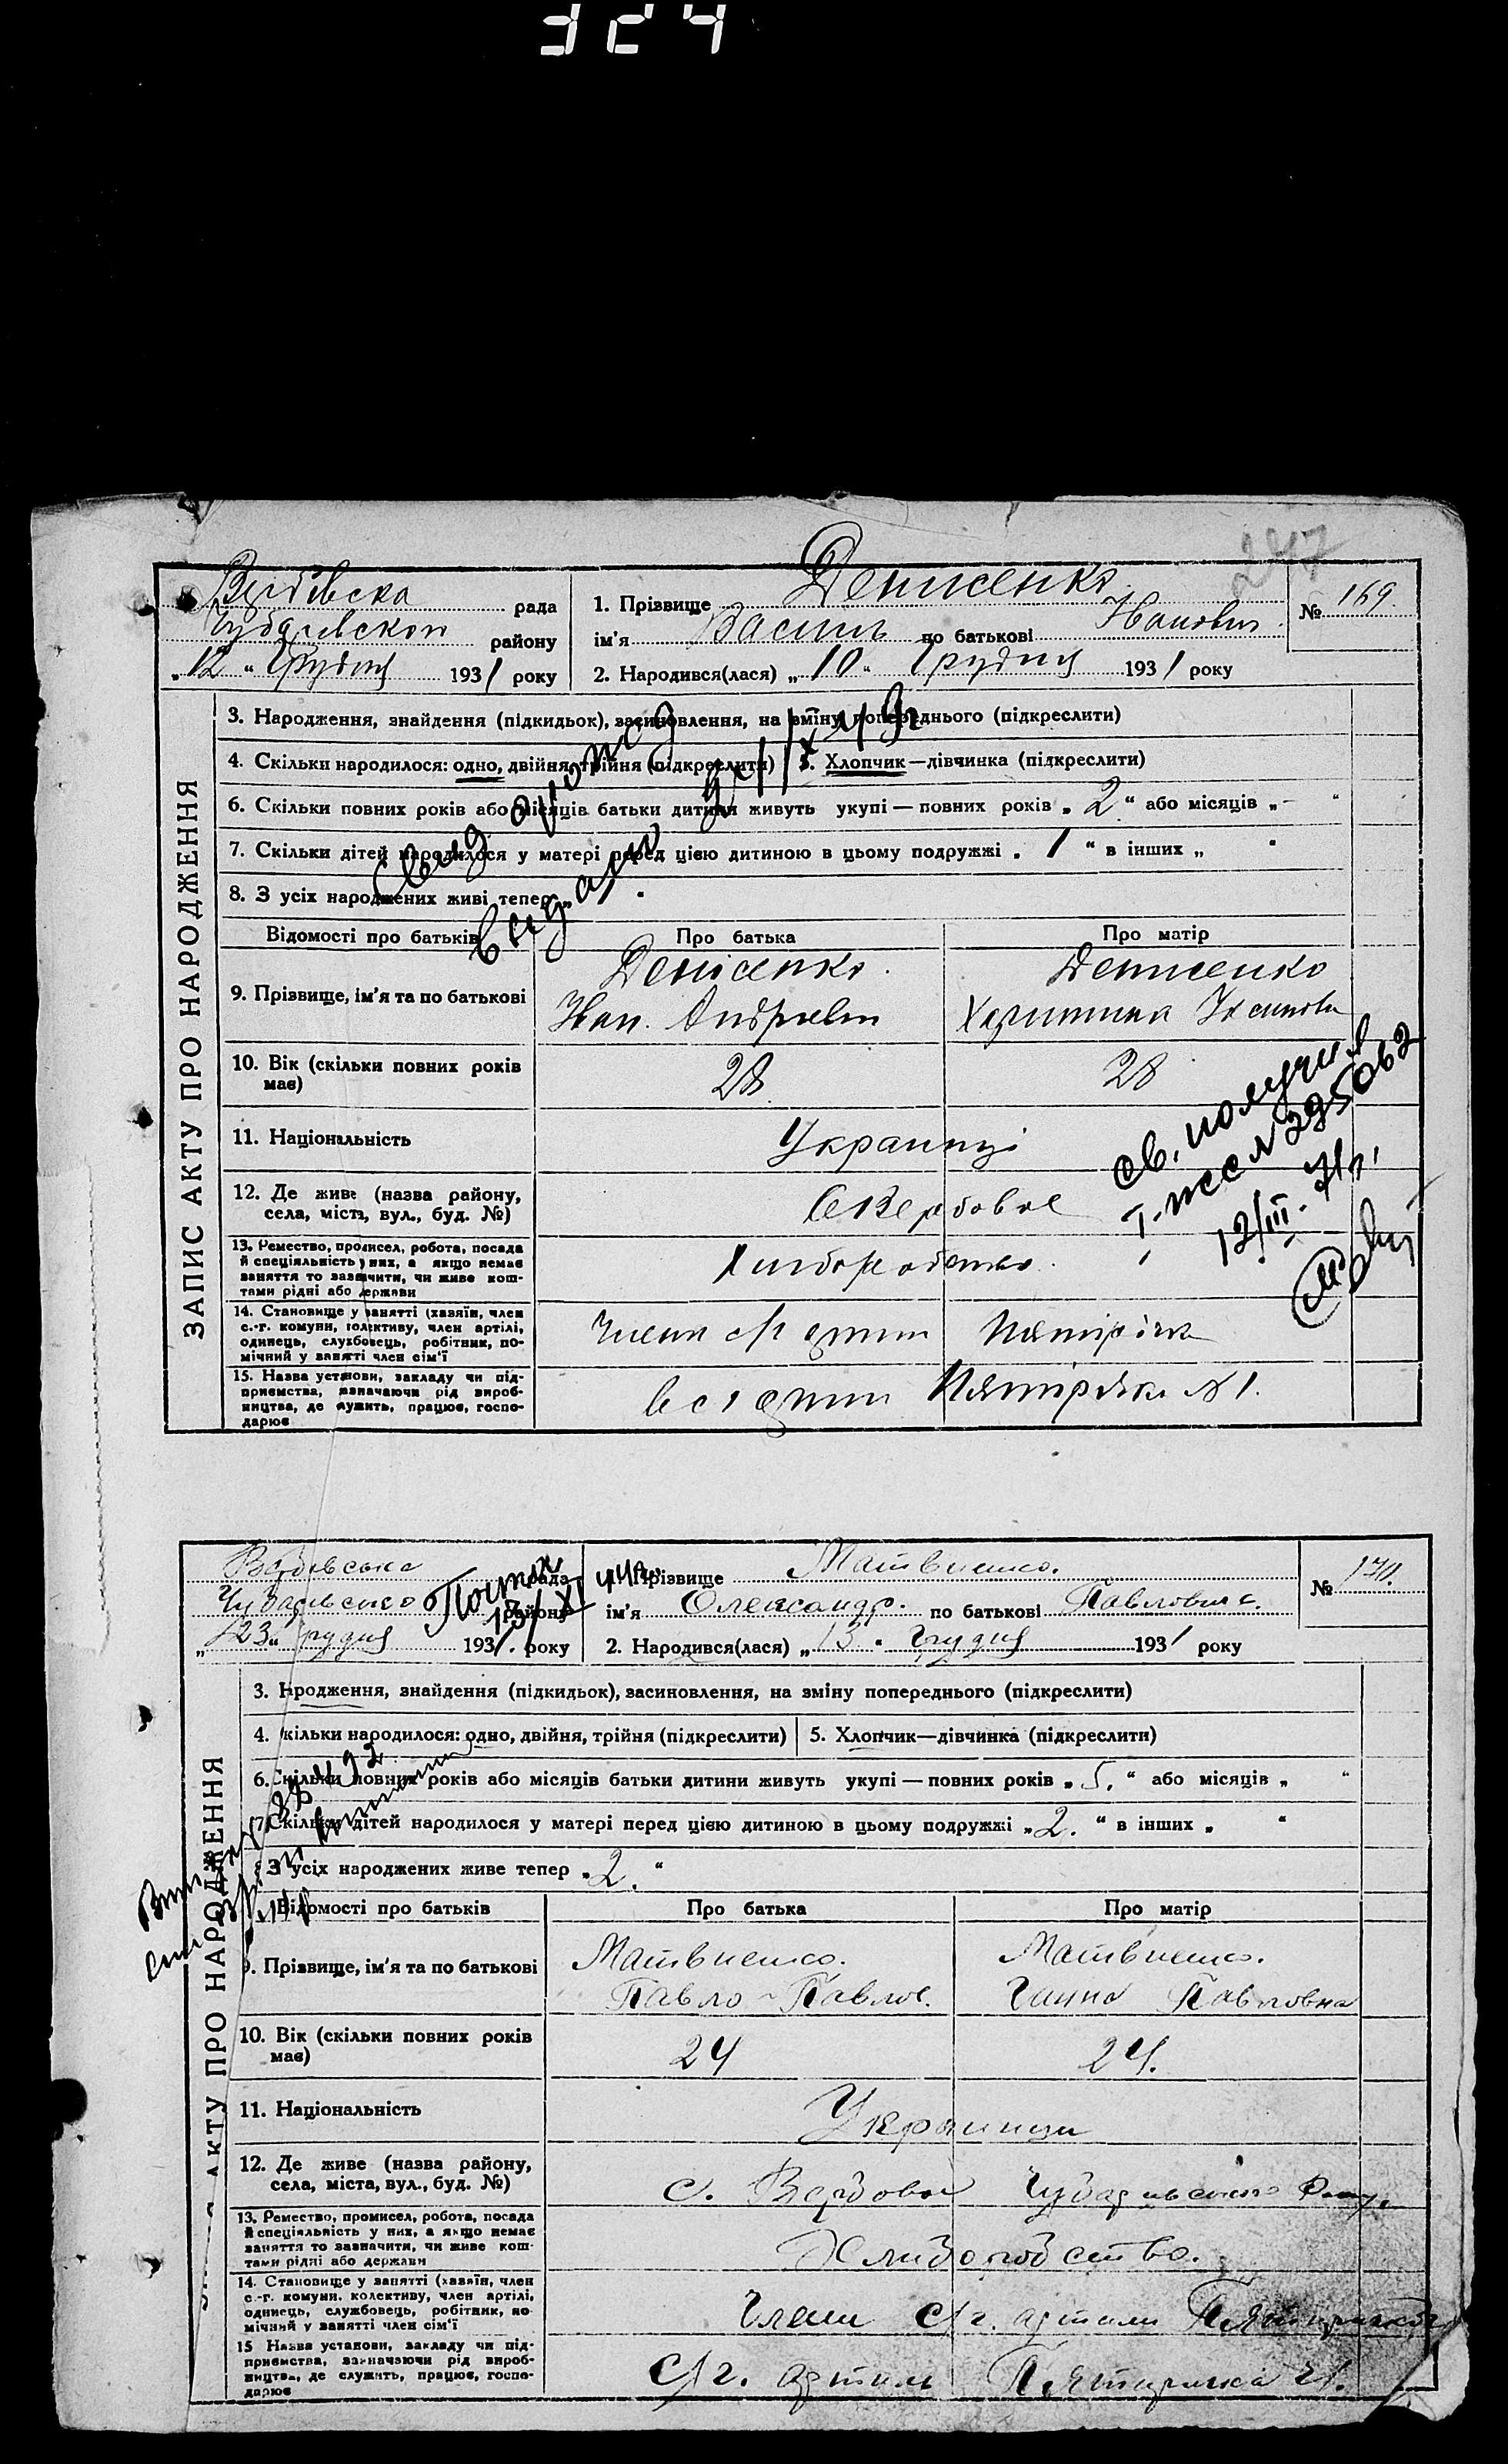 324
247
Вербівска рада
Чубарівском району
„12“ Грудня 1931 року
1. Прізвище Денисенко
ім'я Василь по батькові Іванович
2. Народився(лася) „10“ Грудня 1931 року
№ 169.
ЗАПИС АКТУ ПРО НАРОДЖЕННЯ
3. Народження, знайдення (підкидьок), засиновлення, на зміну попереднього (підкреслити)
4. Скільки народилося: одно, двійня, трійня (підкреслити) 5. Хлопчик—дівчинка (підкреслити)
6. Скільки повних років або місяців батьки дитини живуть укупі — повних років „2“ або місяців „-“
7. Скільки дітей народилося у матері перед цією дитиною в цьому подружжі „1“ в інших „ “
8. З усіх народжених живі тепер „ “
видано
Відомості про батьків Про батька Про матір
9. Прізвище, ім'я та по батькові
Денісенко. Денисенко
Іван. Андрієвич Харитина
10. Вік (скільки повних років має)
28 28
св. получил
12/III-71г.
11. Національність
Украинці
12. Де живе (назва району, села, міста, вул., буд. №)
с Вербовое
13. Ремество, промисел, робота, посада й спеціяльність у них, а якщо немає заняття то зазначити, чи живе коштами рідні або держави
Хлиборобство.
14. Становище у занятті (хазяїн, член с.-г. комуни, колективу, член артілі, одинець, службовець, робітник, помічний у занятті член сім'ї
Члени с/г артили Пятирічка
15. Назва установи, закладу чи підприємства, зазначаючи рід виробництва, де служить, працює, господарює
Пятирічка №1.
Вербівська рада
Чубарівського району
„23“ грудня 1931. року
1. Прізвище Матвиенко.
ім'я Олександр. по батькові Павлович.
2. Народився(лася) „13“ Грудня 1931 року
№ 170.
АКТУ ПРО НАРОДЖЕННЯ
3. Нродження, знайдення (підкидьок), засиновлення, на зміну попереднього (підкреслити)
4. кільки народилося: одно, двійня, трійня (підкреслити) 5. Хлопчик—дівчинка (підкреслити)
6. Скільки повних років або місяців батьки дитини живуть укупі — повних років „5.“ або місяців „ “
7. Скільки дітей народилося у матері перед цією дитиною в цьому подружжі „2.“ в інших „ “
З усіх народжених живе тепер „2.“
Відомості про батьків Про батька Про матір
9. Прізвище, ім'я та по батькові
Матвиенко. Матвиенко.
Павло Павлов. Ганна Павловна
10. Вік (скільки повних років має)
24 24.
11. Національність
Украинци
12. Де живе (назва району, села, міста, вул., буд. №)
с. Вербове Чубарівського Району
13. Ремество, промисел, робота, посада й спеціяльність у них, а якщо немає заняття то зазначити, чи живе коштами рідні або держави
Хлиборобство.
14. Становище у занятті (хазяїн, член с.-г. комуни, колективу, член артілі, одинець, службовець, робітник, помічний у занятті член сім'ї
Члени С/г. артили
15 Назва установи, закладу чи підприємства, зазначаючи рід виробництва, де служить, працює, господарює
С/г. артиль Пятиричка